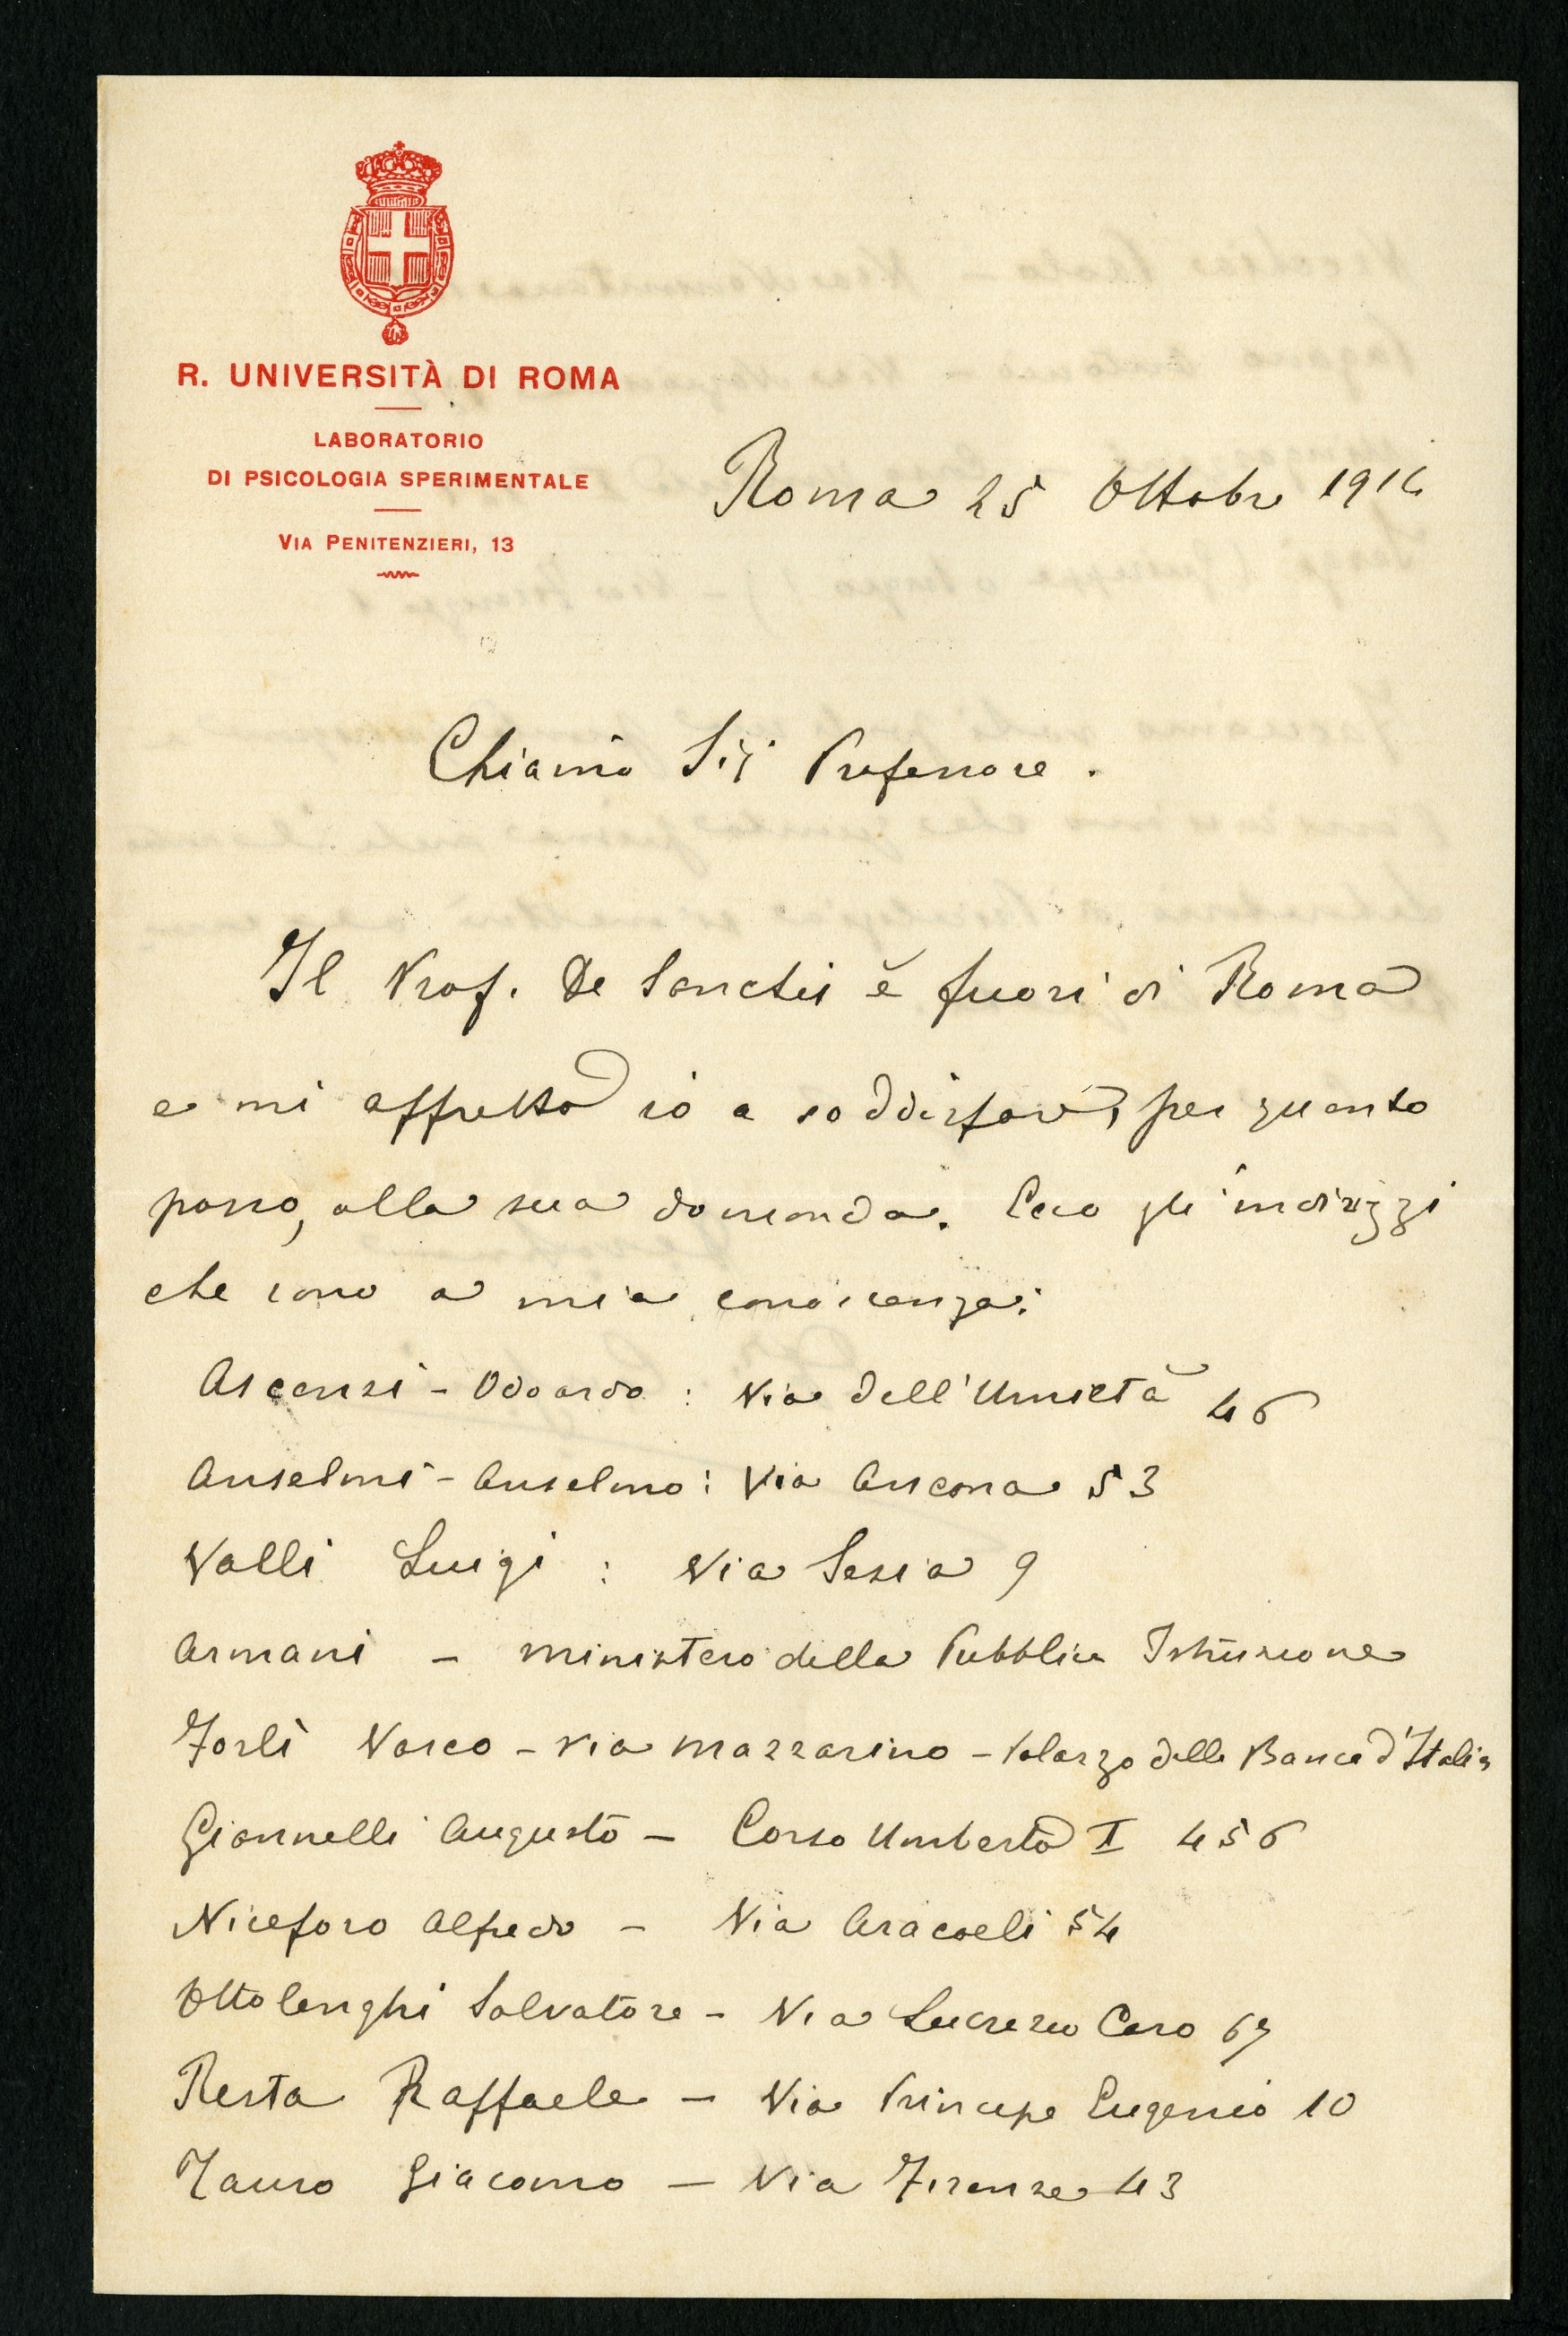 R. UNIVERSITÀ DI ROMA
LABORATORIO
DI PSICOLOGIA SPERIMENTALE
VIA PENITENZIERI, 13
Roma 25 Ottobre 1914
Chiarmo Sig Professore.
Il Prof. De Sanctis è fuori di Roma
e mi affretto io a soddisfare, per quanto
posso, alla sua domanda. Ecco gli indirizzi
che sono a mia conoscenza:
Ascensi - Odoardo : Via dell'Umiltà 46
Anselmi - Anselmo : Via Ancona 53
Valli Luigi : Via Sesia 9
Armani - Ministero della Pubblica Istruzione
Forlì Vasco - Via Mazzarino - Palazzo della Banca d'Italia
Giannelli Augusto - Corso Umberto I 456
Niceforo Alfredo - Via Aracoeli 54
Ottolenghi Salvatore - Via Lucrezio Caro 67
Resta Raffaele - Via Principe Eugenio 10
Tauro Giacomo - Via Firenze 43